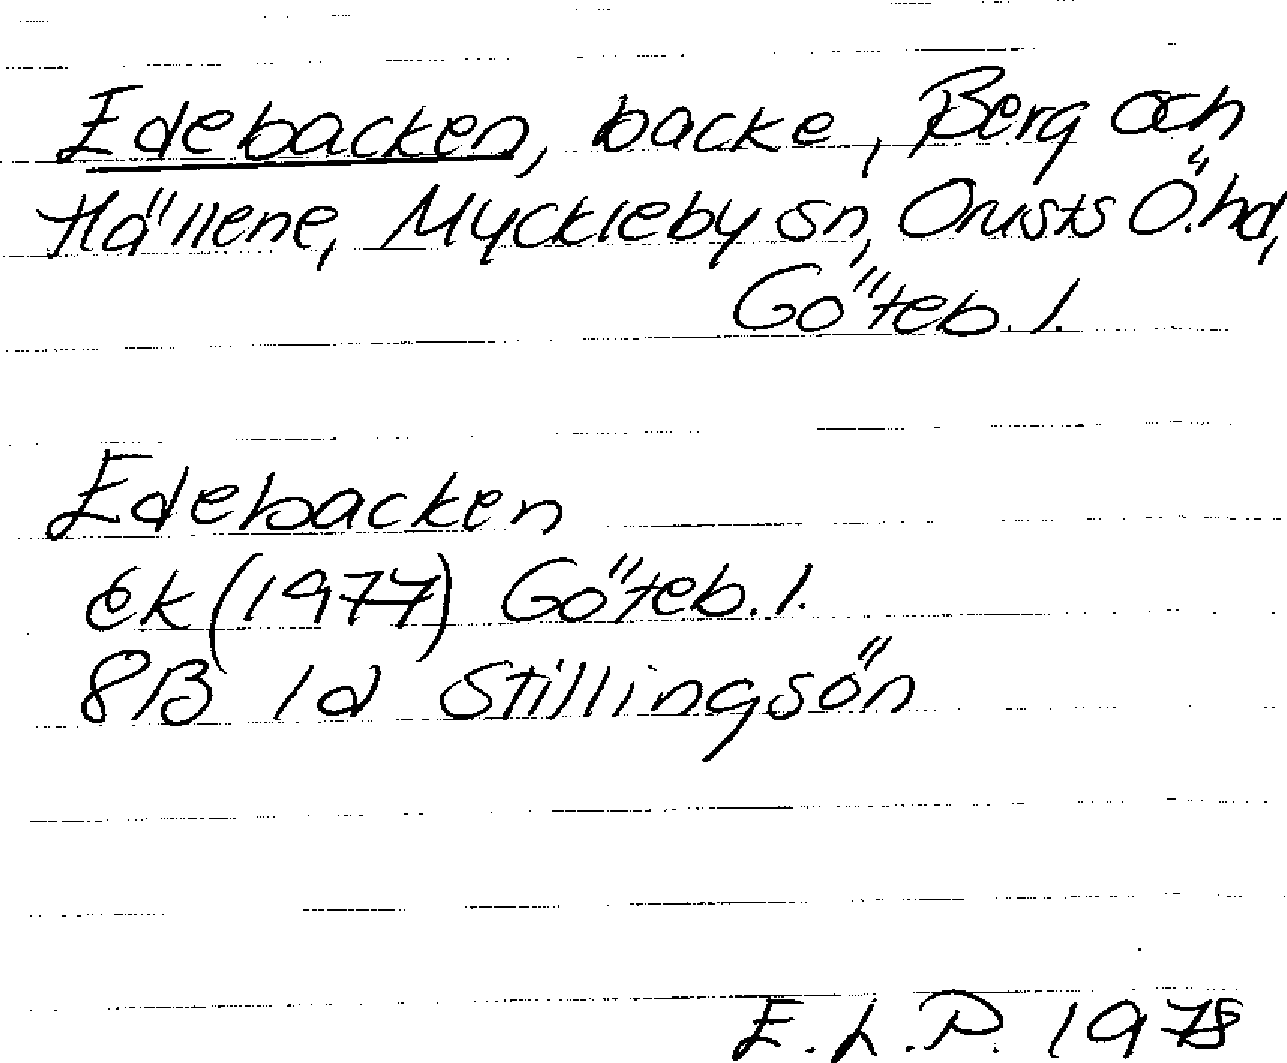 Edebacken, backe, Berg och
Hällene, Myckleby sn, Orusts Ö. hd,
Göteb. l.
Edebacken
ek (1977) Göteb. l.
8B 1d Stillingsön
E. L. P. 1978